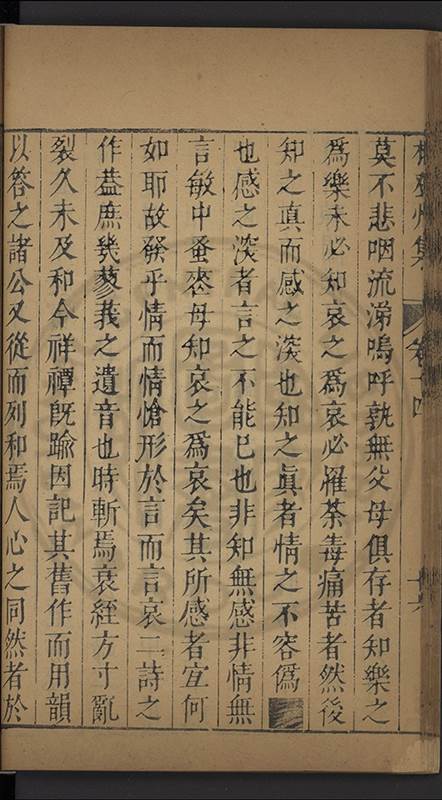 莫不悲咽流涕嗚呼孰無父母俱存者知樂之
爲樂未必知哀之爲哀必罹荼毒痛苦者然後
知之真而感之深也知之真者情之不容僞
也感之深者言之不能已也非知無感非情無
言敏中蚤喪母知哀之爲哀矣其所感者宜何
如耶故發乎情而情愴形於言而言哀二詩之
作葢庶幾蓼莪之遺音也時斬焉衰絰方寸亂
裂久未及和今祥禫旣踰因記其舊作而用韻
以答之諸公又從而列和焉人心之同然者於